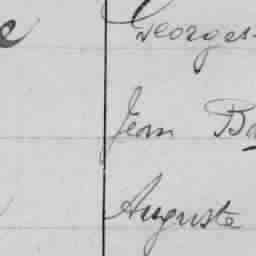 Georges
Jean Ba
Auguste